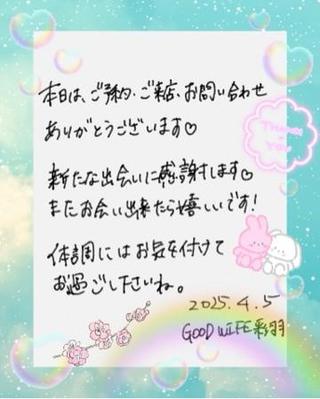 本日は、ご予約・ご来店・お問い合わせ
ありがとうございます♡
THANK YOU
新たな出会いに感謝します♡
またお会い出来たら嬉しいです!
体調にはお気を付けて
お過ごし下さいね。
2025.4.5
GOOD WIFE 彩羽